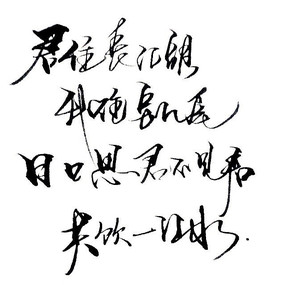 君住長江頭
我住長江尾
日日思君不见君
共饮一江水